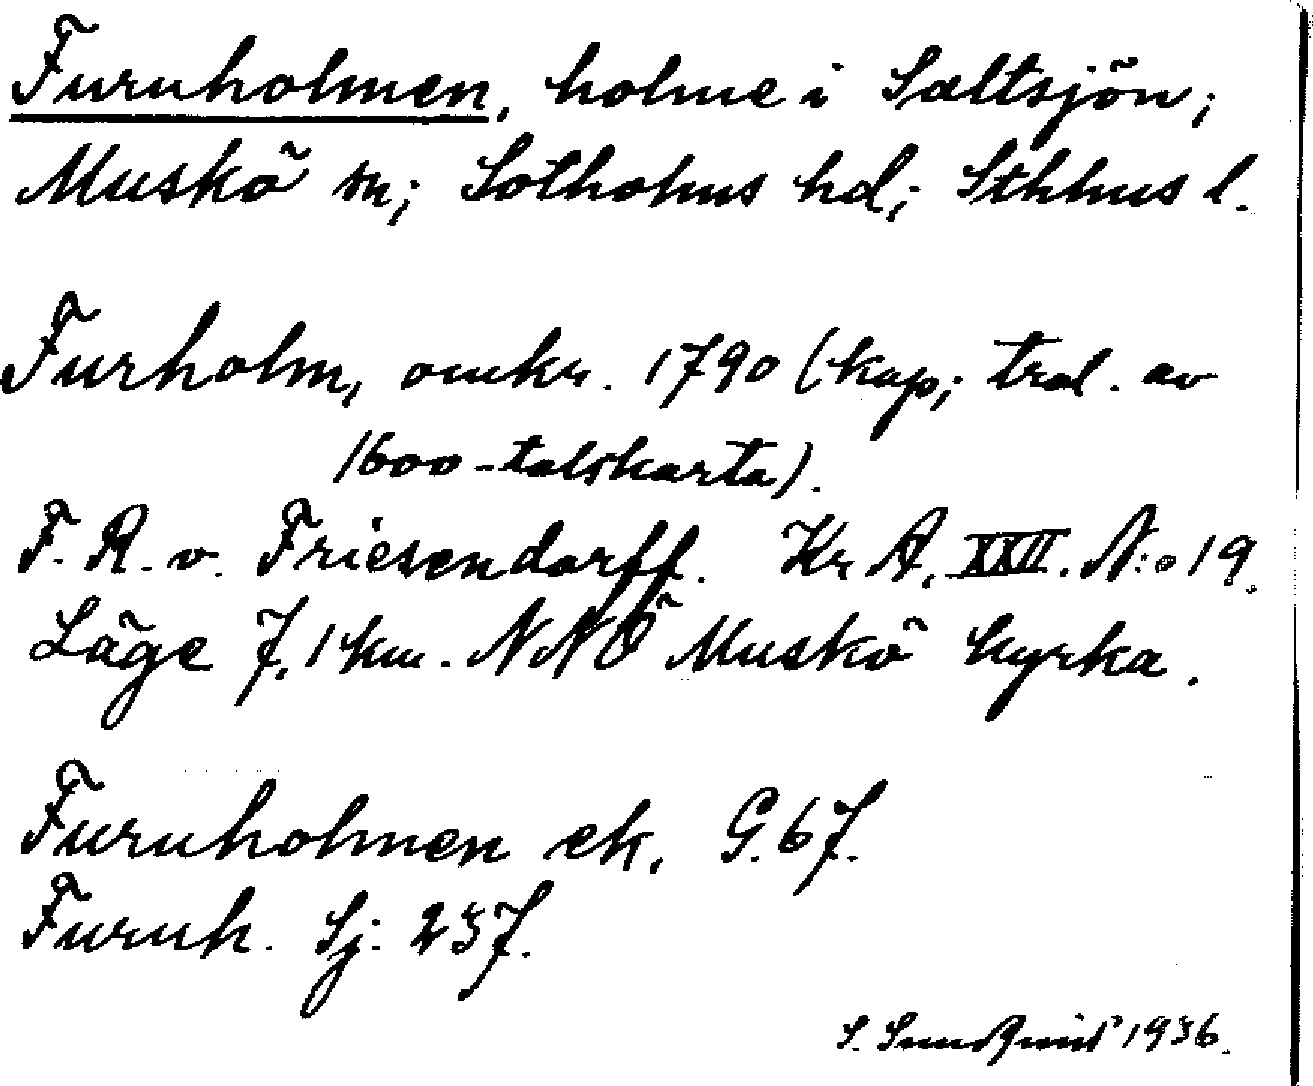 Furuholmen, holme i Saltsjön;
Muskö sn; Sotholms hd; Sthlms l.
Furholm, omkr. 1790 (kap; tral. av
1600-talskarta).
F. R. v. Friesendorff. Kr A. XXII. N:o 19.
Läge 7,1 km. NNÖ Muskö kyrka.
Furuholmen ek. G. 67.
Furuh. Sj: 237.
S. Sundqvist 1936.